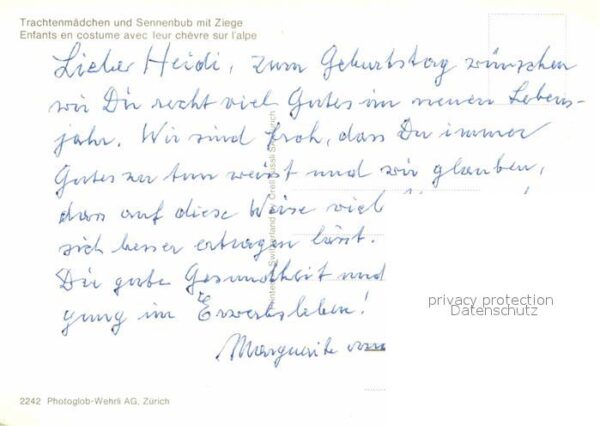 Trachtenmädchen und Sennenbub mit Ziege
Enfants en costume avec leur chèvre sur l'alpe
Lieber Heidi, zum Geburtstag wünschen
wir Dir recht viel Gutes im neuen Lebens-
jahr. Wir sind froh, dass Du immer
Gutes zu tun weisst und wir glauben,
dass auf diese Weise viel
sich besser ertragen lässt.
Dir gute Gesundheit und
gung im Erwerbsleben!
Marguerite
privacy protection
Datenschutz
2242 Photoglob-Wehrli AG, Zürich